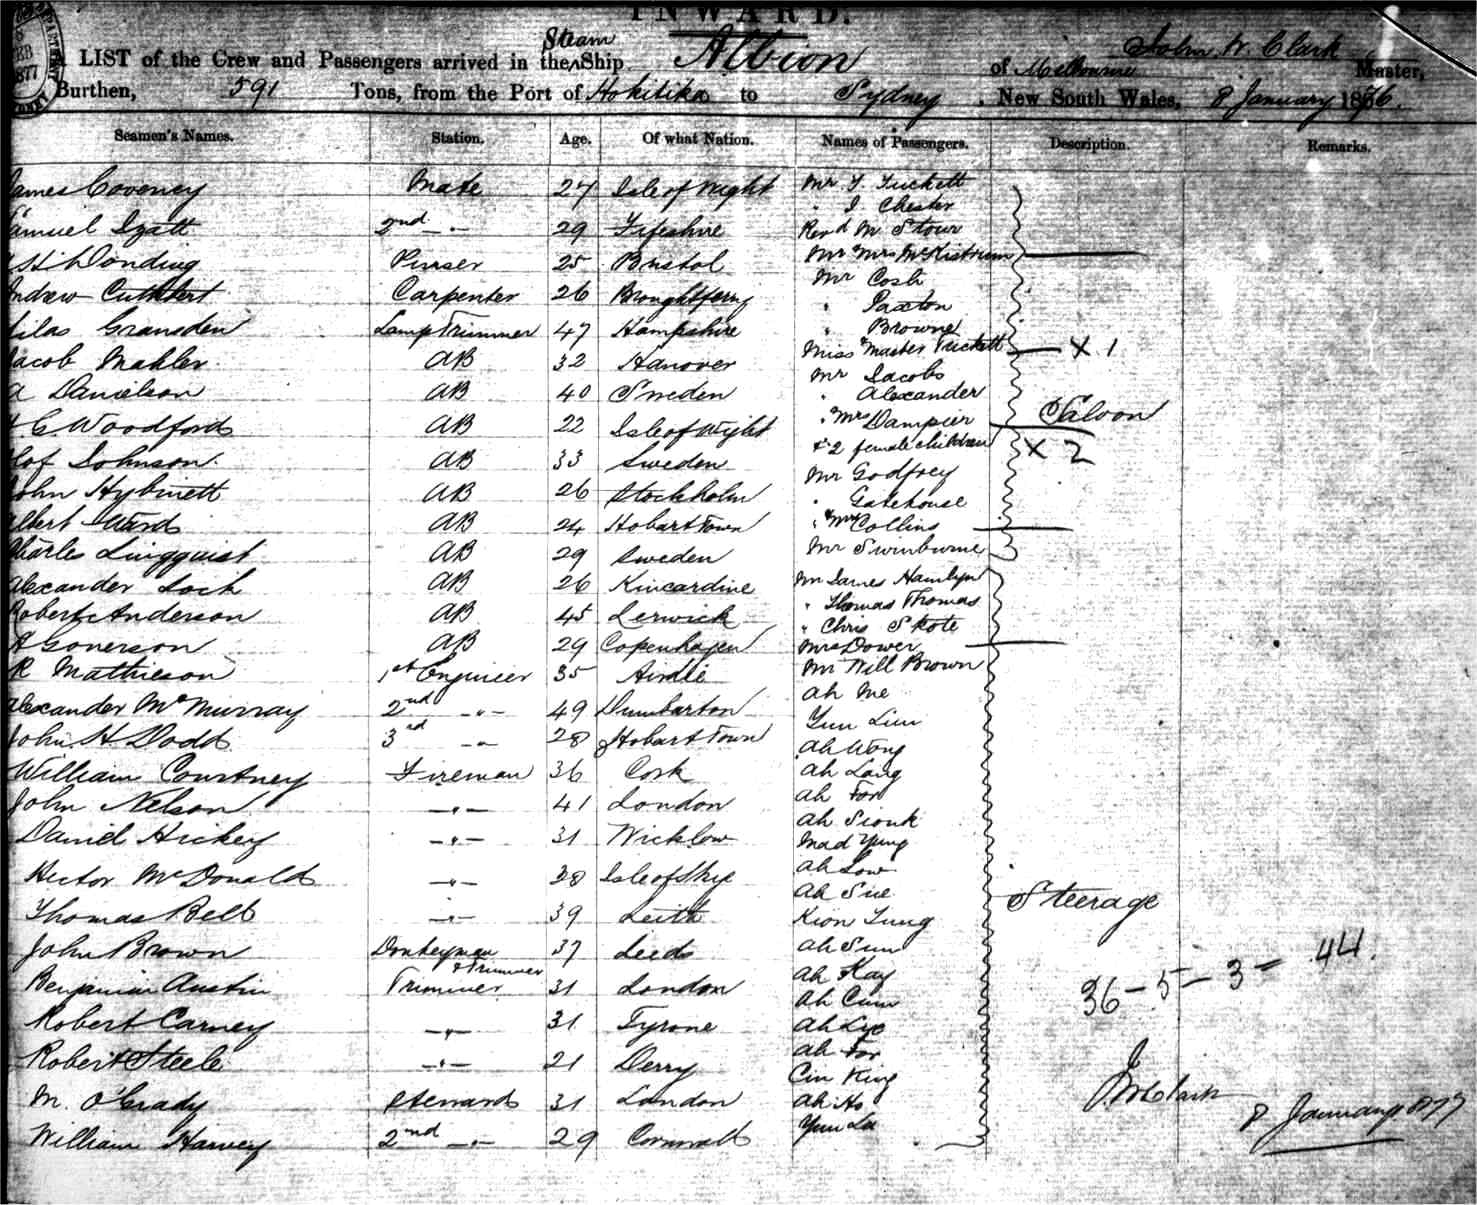 INWARD.
A LIST of the Crew and Passengers arrived in the Steam Ship Albion of Melbourne John W. Clark Master,
Burthen, 591 Tons, from the Port of Hokitika to Sydney, New South Wales, 8 January 1876.
Seamen's Names. Station. Age. Of what Nation. Names of Passengers. Description. Remarks.
James Coveney Mate 27 Isle of Wight Mr T. Tuckett
" J Chester
Samuel Izatt 2nd -"- 29 Fifeshire Revd M Stour
Donding Purser 25 Bristol Mr & Mrs
Andrew Cuthbert Carpenter 26 Broughtyferry Mr Cosh
" Paxton
Silas Gransden Lamp Trimmer 47 Hampshire " Browne
Jacob Mahler AB 32 Hanover Miss & Master Tuckett X 1
Mr Jacobs
A Danielson AB 40 Sweden " Alexander
C. Woodford AB 22 Isle of Wight " & Mrs Dampier Saloon
& 2 female children X 2
Olof Johnson AB 33 Sweden Mr Godfrey
John Hybinett AB 26 Stockholm " Gatehouse
Albert Ward AB 24 Hobart Town " & Mrs Collins
Charles Lingquist AB 29 Sweden Mr Swinburne
Alexander Loch AB 26 Kincardine Mr James Hamlyn
" Thomas Thomas
Robert Anderson AB 45 Lerwick " Chris Skote
A Gonerson AB 29 Copenhagen Mrs Dower
R Mathieson 1st Engineer 35 Airdlie Mr Will Brown
Ah Me
Alexander McMurray 2nd -"- 49 Dumbarton Yun Lin
John H Dodd 3rd -"- 28 Hobart Town Ah Wong
William Courtney Fireman 36 Cork Ah Lang
John Nelson -"- 41 London Ah Fon
Ah Sionk
Daniel Hickey -"- 31 Wicklow Mad Yung
Hector McDonald -"- 38 Isle of Skye Ah Low
Ah Sue
Thomas Bell -"- 39 Leith Kion Tung
Steerage
John Brown Donkeyman & Trimmer 37 Leeds Ah Sun
Benjamin Austin Trimmer 31 London Ah Kay
Ah Cum
36 - 5 - 3 = 44.
Robert Carney -"- 31 Tyrone Ah Lye
Robert Steele -"- 21 Derry Ah For
Cin King
M. O'Grady Steward 31 London Ah Ho
J W Clark
William Harvey 2nd -"- 29 Cornwall Yun La
8 January 1877